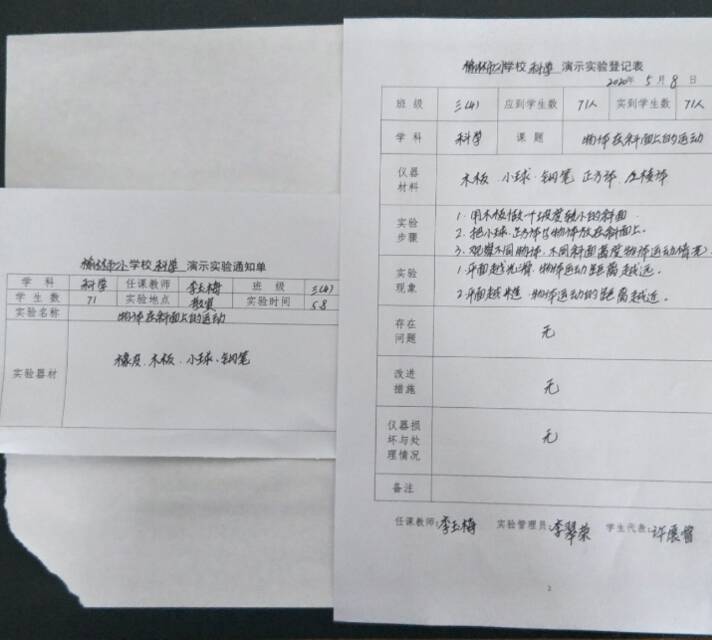 学校 科学 演示实验通知单
学科 科学 任课教师 李玉梅 班级 三(4)
学生数 71 实验地点 教室 实验时间 5.8
实验名称 物体在斜面上的运动
实验器材 橡皮、木板、小球、钢笔
学校 科学 演示实验登记表
2020年 5月 8日
班级 三(4) 应到学生数 71人 实到学生数 71人
学科 科学 课题 物体在斜面上的运动
仪器材料 木板、小球、钢笔 正方体
实验步骤 1. 用木板做一个坡度较小的斜面.
2. 把小球、正方体等物体放在斜面上。
3. 观察不同物体、不同斜面 物体运动情况
实验现象 1. 平面越光滑、物体运动距离越远。
2. 平面越 物体运动的距离越远。
存在问题 无
改进措施 无
仪器损坏与处理情况 无
备注
任课教师:李玉梅 实验管理员:李翠荣 学生代表:许
2